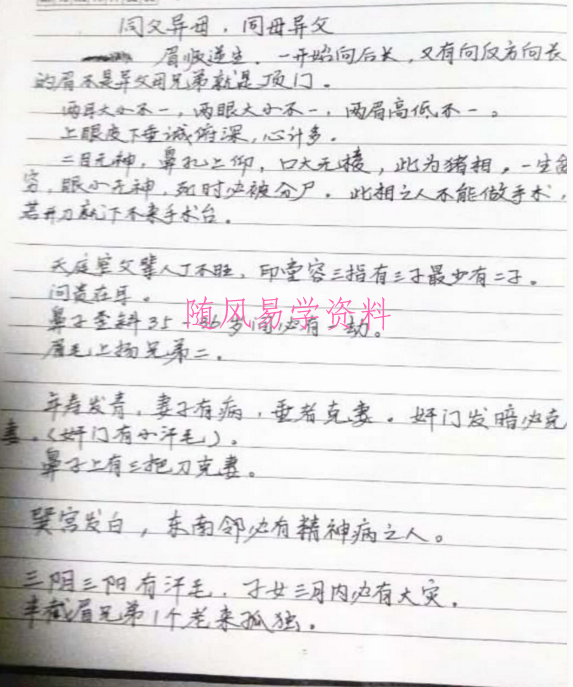 同父异母，同母异父
眉順逆生．一开始向后长，又有向反方向长
的眉不是异父母兄弟就是顶门．
两耳大小不一，两眼大小不一，两眉高低不一。
上眼皮下垂诚府深，心计多．
二目无神，鼻孔上仰，口大无棱，此为猪相，一生
穷，眼小无神，死时必被分尸．此相之人不能做手术，
若开刀就下不来手术台．
天庭窄父辈人丁不旺，印堂容三指有三子最少有二子。
问贵在耳。
鼻子歪斜35-36岁间必有一劫。
随风易学资料
眉毛上扬兄弟二．
年寿发青，妻子有病，重者克妻．奸门发暗必克
妻．（奸门有小汗毛）．
鼻子上有三把刀克妻。
巽宫发白，东南邻必有精神病之人。
三阴三阳有汗毛，子女三月内必有大灾．
半截眉兄弟1个老来孤独．